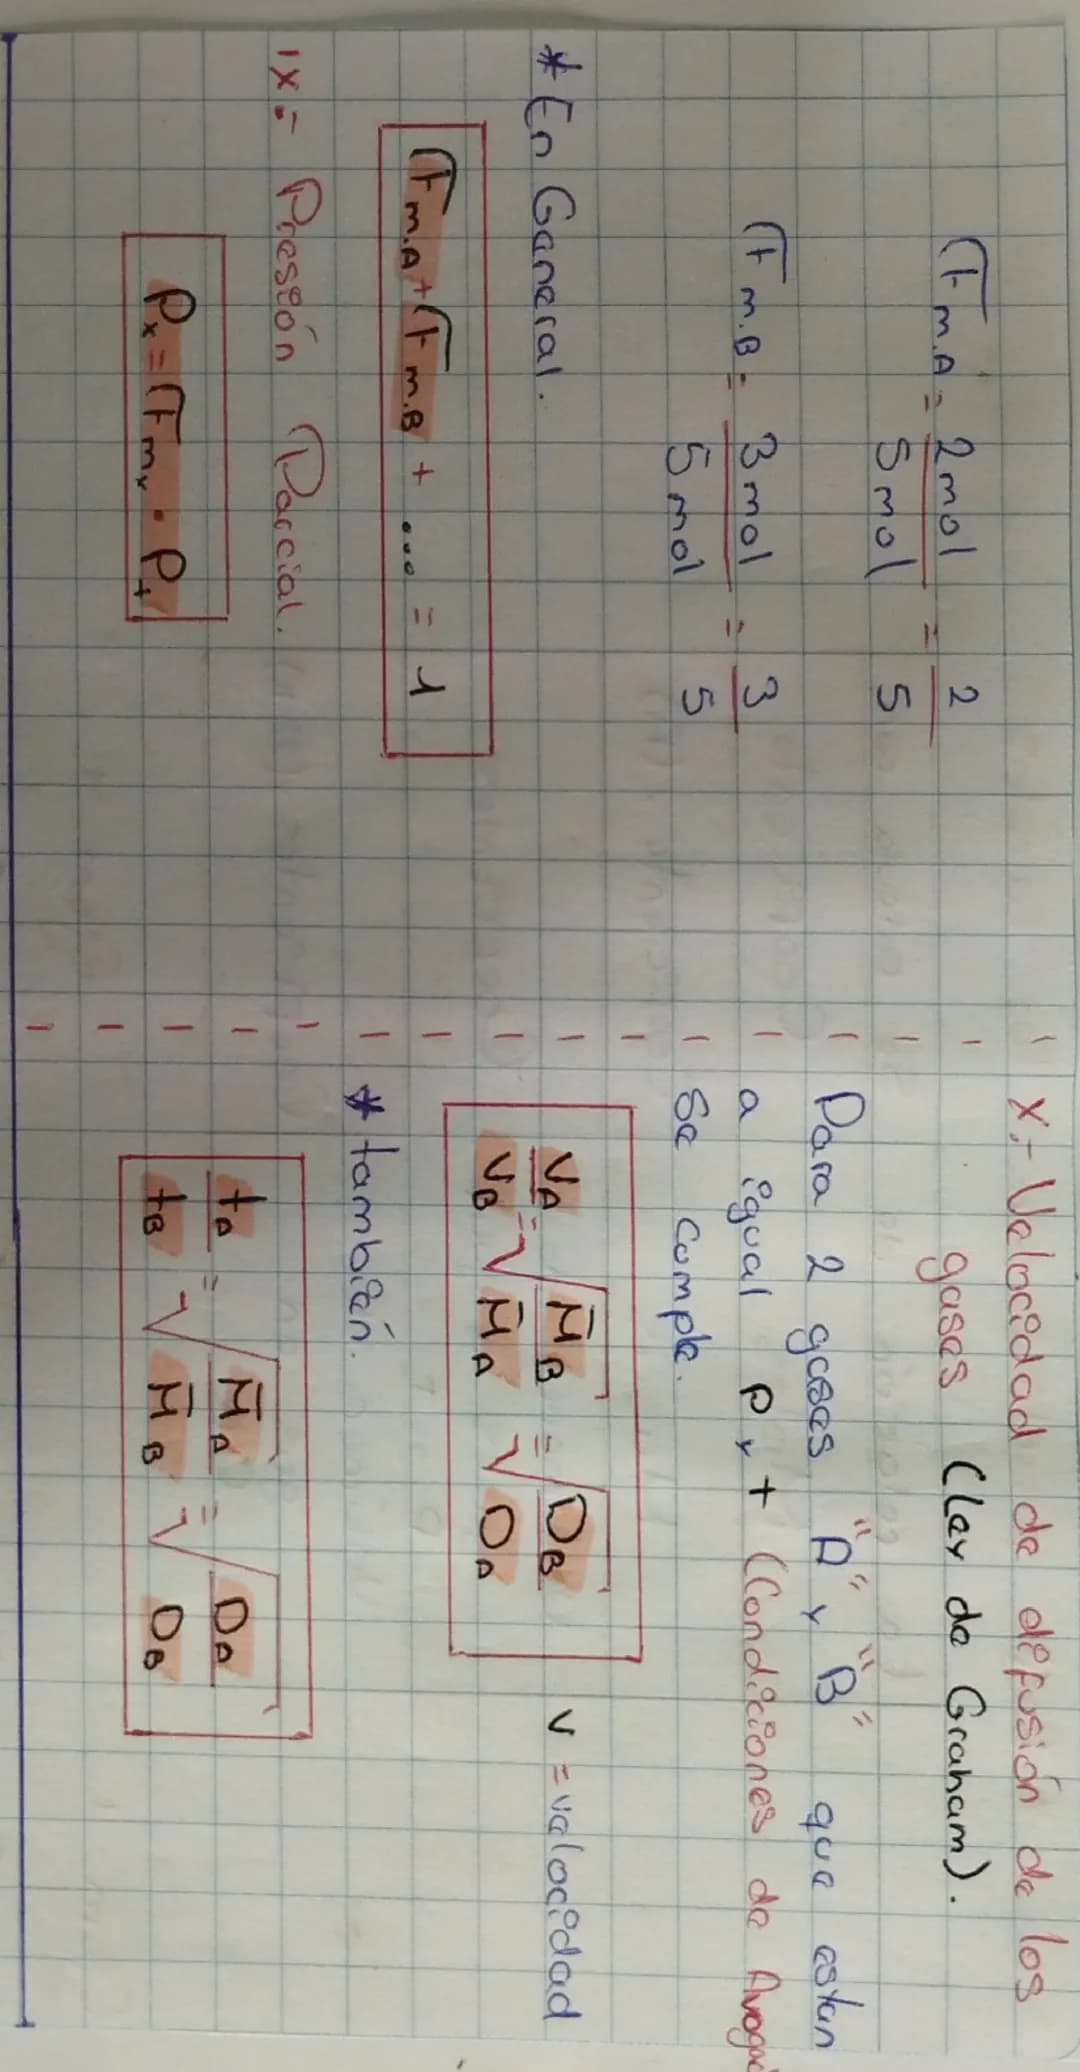 fm.A = 2mol / 5mol = 2 / 5
fm.B = 3mol / 5mol = 3 / 5
* En General.
fm.A + fm.B + ... = 1
IX.- Presión Parcial.
Px = fmx . Pt
X.- Velocidad de difusión de los
gases (Ley de Graham).
Para 2 gases "A" y "B" que estan
a igual P y t (Condiciones de Avogad
se cumple.
VA / VB = √M̄B / M̄A = √DB / DA V = velocidad
* también.
tA / tB = √M̄A / M̄B = √DA / DB